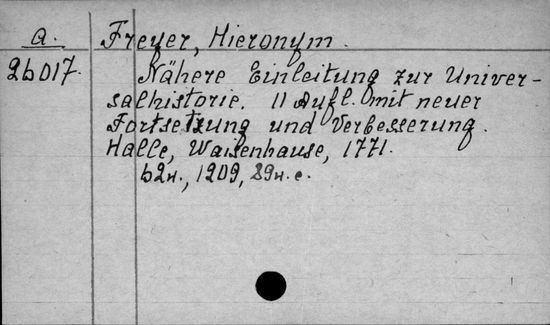 a. Freyer, Hieronym.
26017. Nähere Einleitung zur Univer-
salhistorie. 11 Aufl. mit neuer
Fortsetzung und Verbesserung.
Halle, Waisenhause, 1771.
62н., 1209, 89н. с.